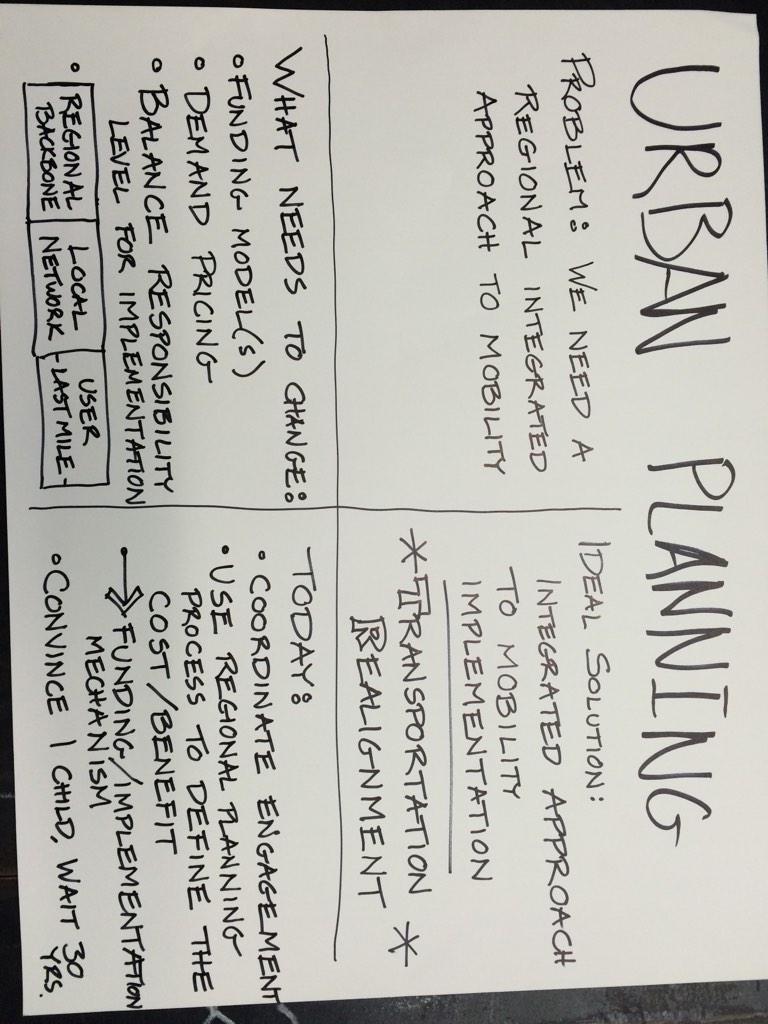 URBAN PLANNING
PROBLEM: WE NEED A
REGIONAL INTEGRATED
APPROACH TO MOBILITY
IDEAL SOLUTION:
INTEGRATED APPROACH
TO MOBILITY
IMPLEMENTATION
*TRANSPORTATION
REALIGNMENT *
WHAT NEEDS TO CHANGE:
• FUNDING MODEL(S)
• DEMAND PRICING
• BALANCE RESPONSIBILITY
LEVEL FOR IMPLEMENTATION
• REGIONAL
BACKBONE
LOCAL
NETWORK
USER
-LAST MILE-
TODAY:
• COORDINATE ENGAGEMENT
• USE REGIONAL PLANNING
PROCESS TO DEFINE THE
COST/BENEFIT
• → FUNDING/IMPLEMENTATION
MECHANISM
• CONVINCE 1 CHILD, WAIT 30
YRS.